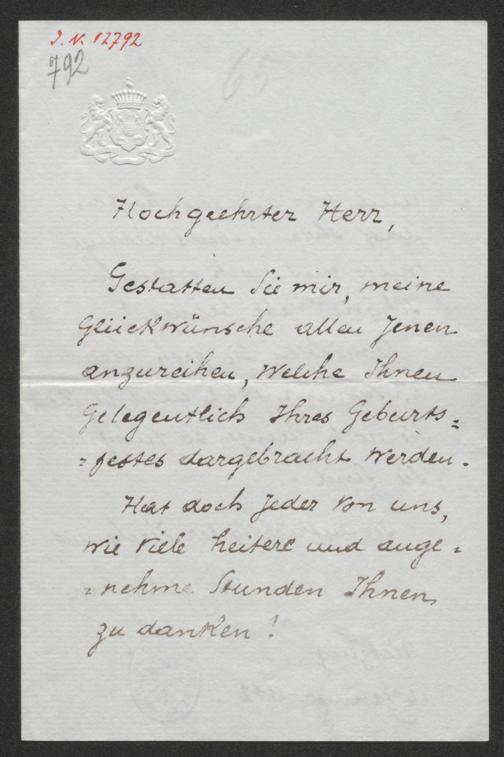 J. N. 12792
792
65
Hochgeehrter Herr,
Gestatten Sie mir, meine
Glückwünsche allen Jenen
anzureihen, welche Ihnen
gelegentlich Ihres Geburts=
=festes dargebracht werden.
Hat doch Jeder von uns,
wie viele heitere und ange=
=nehme Stunden Ihnen
zu danken!